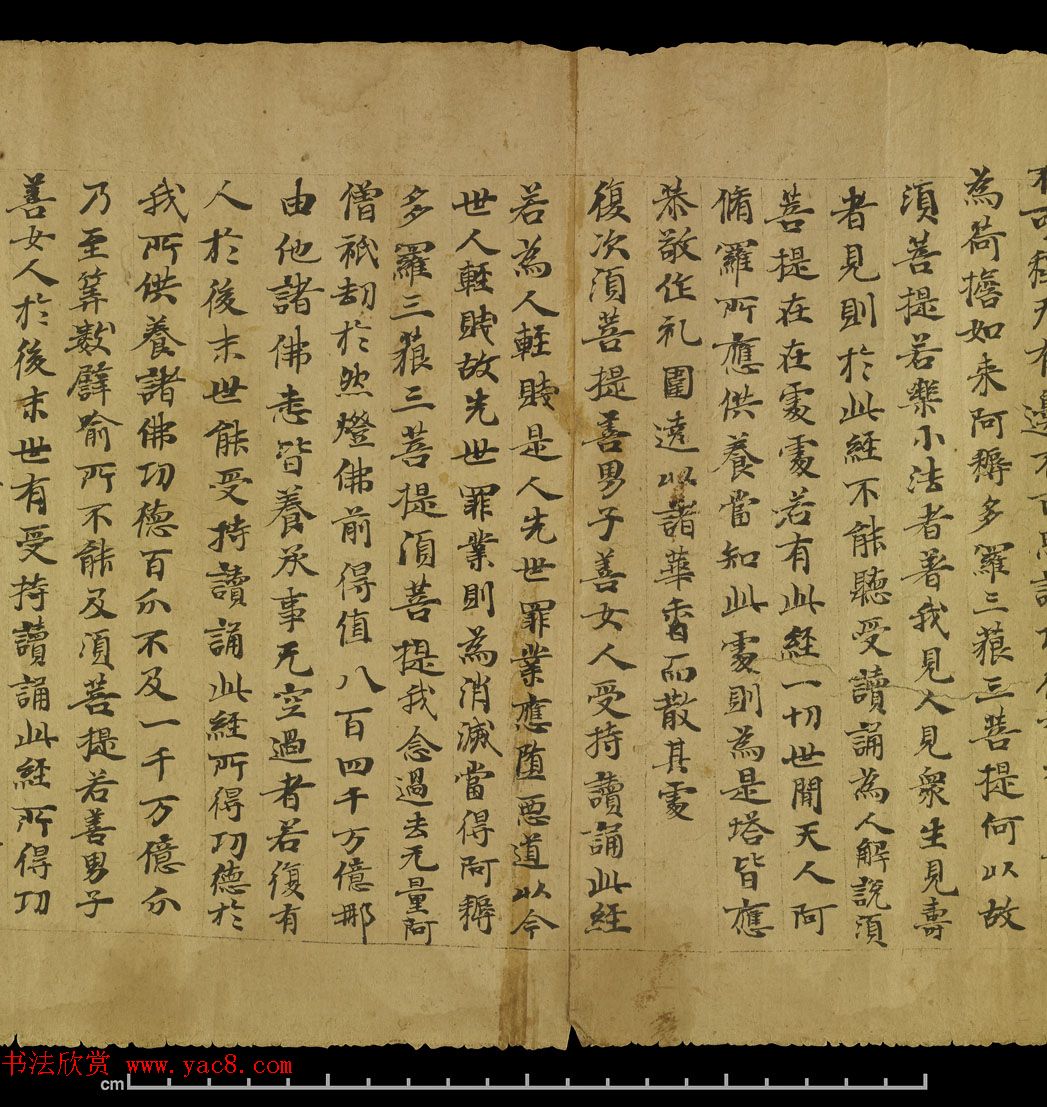 可稱无有邊不可思議
為荷擔如来阿耨多羅三藐三菩提何以故
須菩提若樂小法者著我見人見衆生見壽
者見則於此經不能聽受讀誦為人解說須
菩提在在處處若有此經一切世間天人阿
脩羅所應供養當知此處則為是塔皆應
恭敬作礼圍遶以諸華香而散其處
復次須菩提善男子善女人受持讀誦此經
若為人輕賤是人先世罪業應墮惡道以今
世人輕賤故先世罪業則為消滅當得阿耨
多羅三藐三菩提須菩提我念過去无量阿
僧祇劫於然燈佛前得值八百四千万億那
由他諸佛悉皆養承事无空過者若復有
人於後末世能受持讀誦此經所得功德於
我所供養諸佛功德百分不及一千万億分
乃至筭數譬喻所不能及須菩提若善男子
善女人於後末世有受持讀誦此經所得功
书法欣赏 www.yac8.com
cm